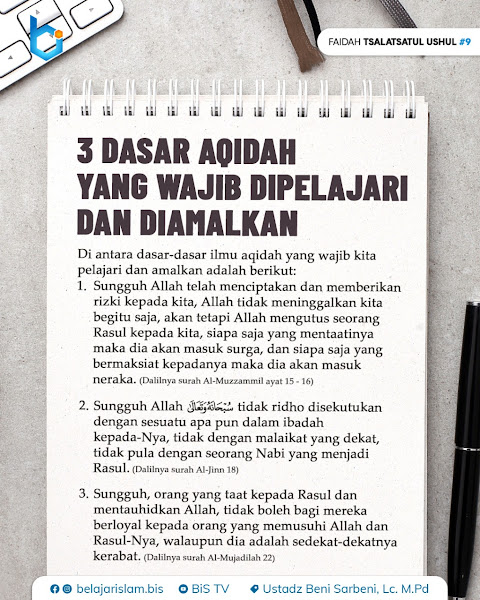 FAIDAH TSALATSATUL USHUL #9
3 DASAR AQIDAH
YANG WAJIB DIPELAJARI
DAN DIAMALKAN
Di antara dasar-dasar ilmu aqidah yang wajib kita
pelajari dan amalkan adalah berikut:
1. Sungguh Allah telah menciptakan dan memberikan
rizki kepada kita, Allah tidak meninggalkan kita
begitu saja, akan tetapi Allah mengutus seorang
Rasul kepada kita, siapa saja yang mentaatinya
maka dia akan masuk surga, dan siapa saja yang
bermaksiat kepadanya maka dia akan masuk
neraka. (Dalilnya surah Al-Muzzammil ayat 15 - 16)
2. Sungguh Allah سُبْحَانَهُ وَتَعَالَى tidak ridho disekutukan
dengan sesuatu apa pun dalam ibadah
kepada-Nya, tidak dengan malaikat yang dekat,
tidak pula dengan seorang Nabi yang menjadi
Rasul. (Dalilnya surah Al-Jinn 18)
3. Sungguh, orang yang taat kepada Rasul dan
mentauhidkan Allah, tidak boleh bagi mereka
berloyal kepada orang yang memusuhi Allah dan
Rasul-Nya, walaupun dia adalah sedekat-dekatnya
kerabat. (Dalilnya surah Al-Mujadilah 22)
belajarislam.bis BiS TV Ustadz Beni Sarbeni, Lc. M.Pd